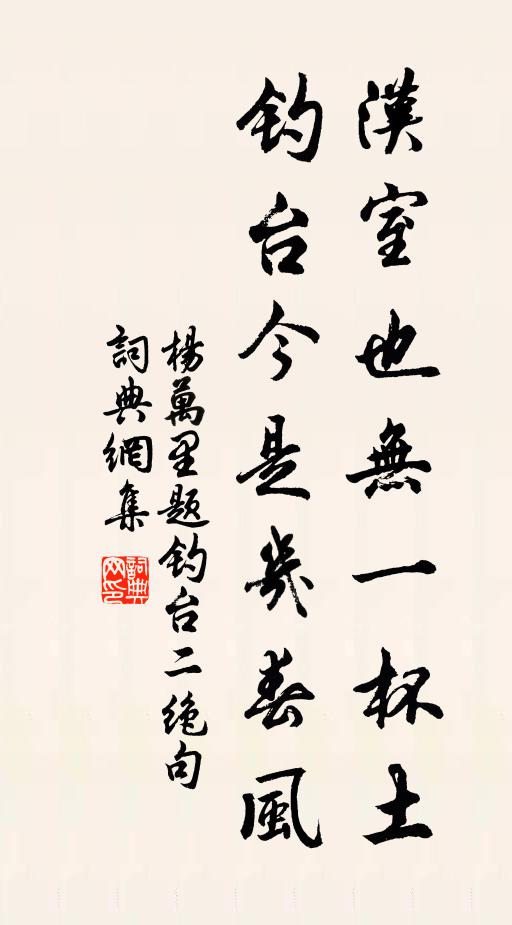 漢室也無一杯土
釣台今是幾春風
楊萬里題釣台二絶句
詞典網集
詞典網印